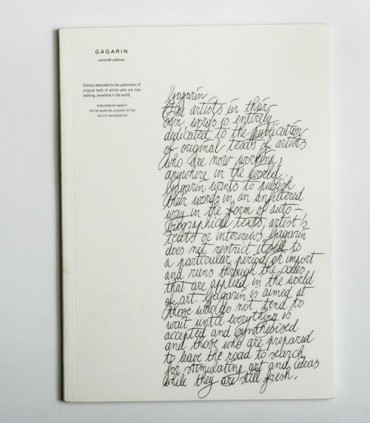 GAGARIN
Entirely dedicated to the publication of
original texts of artists who are now
working, anywhere in the world
Gagarin
the artists in their
own words is entirely
dedicated to the publication
of original texts of artists
who are now working,
anywhere in the world.
Gagarin wants to publish
their words in an unfiltered
way in the form of auto-
biographical texts, artist's
texts or interviews. Gagarin
does not restrict itself to
a particular period or import
and runs through the codes
that are applied in the world
of art. Gagarin is aimed at
those who do not tend to
wait until everything is
accepted and synthesised
and those who are prepared
to leave the road to search
for stimulating art and ideas
while they are still fresh.